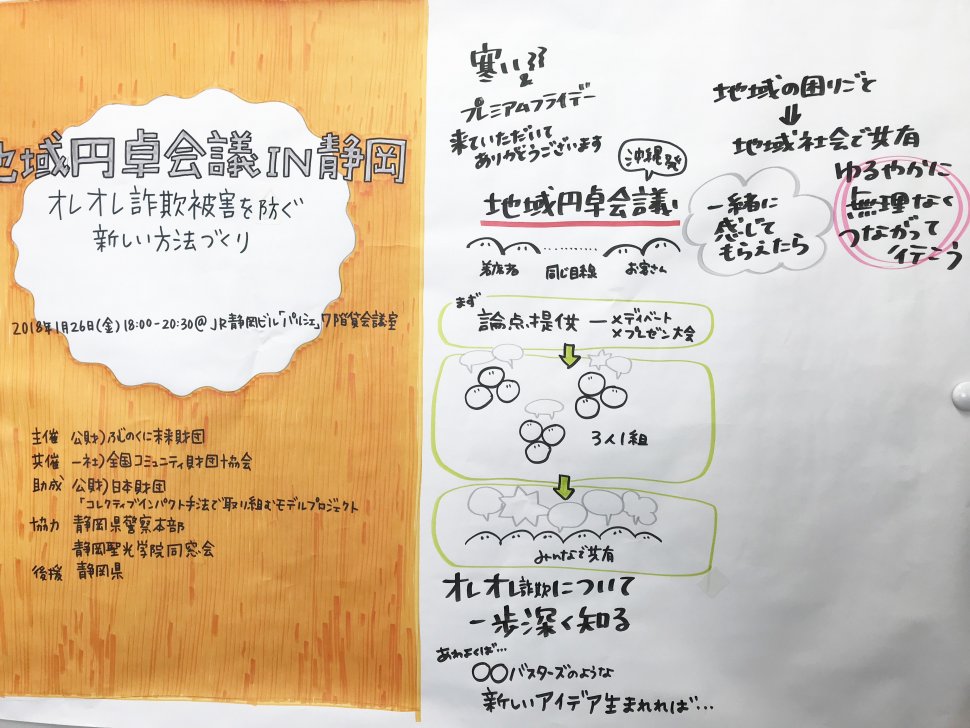 地域円卓会議IN静岡
オレオレ詐欺被害を防ぐ
新しい方法づくり
2018年1月26日(金)18:00-20:30@JR静岡ビル「パルシェ」7階貸会議室
主催 公財)ふじのくに未来財団
共催 一社)全国コミュニティ財団協会
助成 公財)日本財団
「コレクティブインパクト手法で取り組むモデルプロジェクト
協力 静岡県警察本部
静岡聖光学院同窓会
後援 静岡県
寒い
&
プレミアムフライデー
来ていただいて
ありがとうございます
沖縄発
地域円卓会議
着席者 同じ目線 お客さん
まず
論点提供 ー ×ディベート
×プレゼン大会
3人1組
みんなで共有
オレオレ詐欺について
一歩深く知る
あわよくば…
○○バスターズのような
新しいアイデア生まれれば…
地域の困りごと
⇓
地域社会で共有
一緒に
感じて
もらえたら
ゆるやかに
無理なく
つながって
行こう